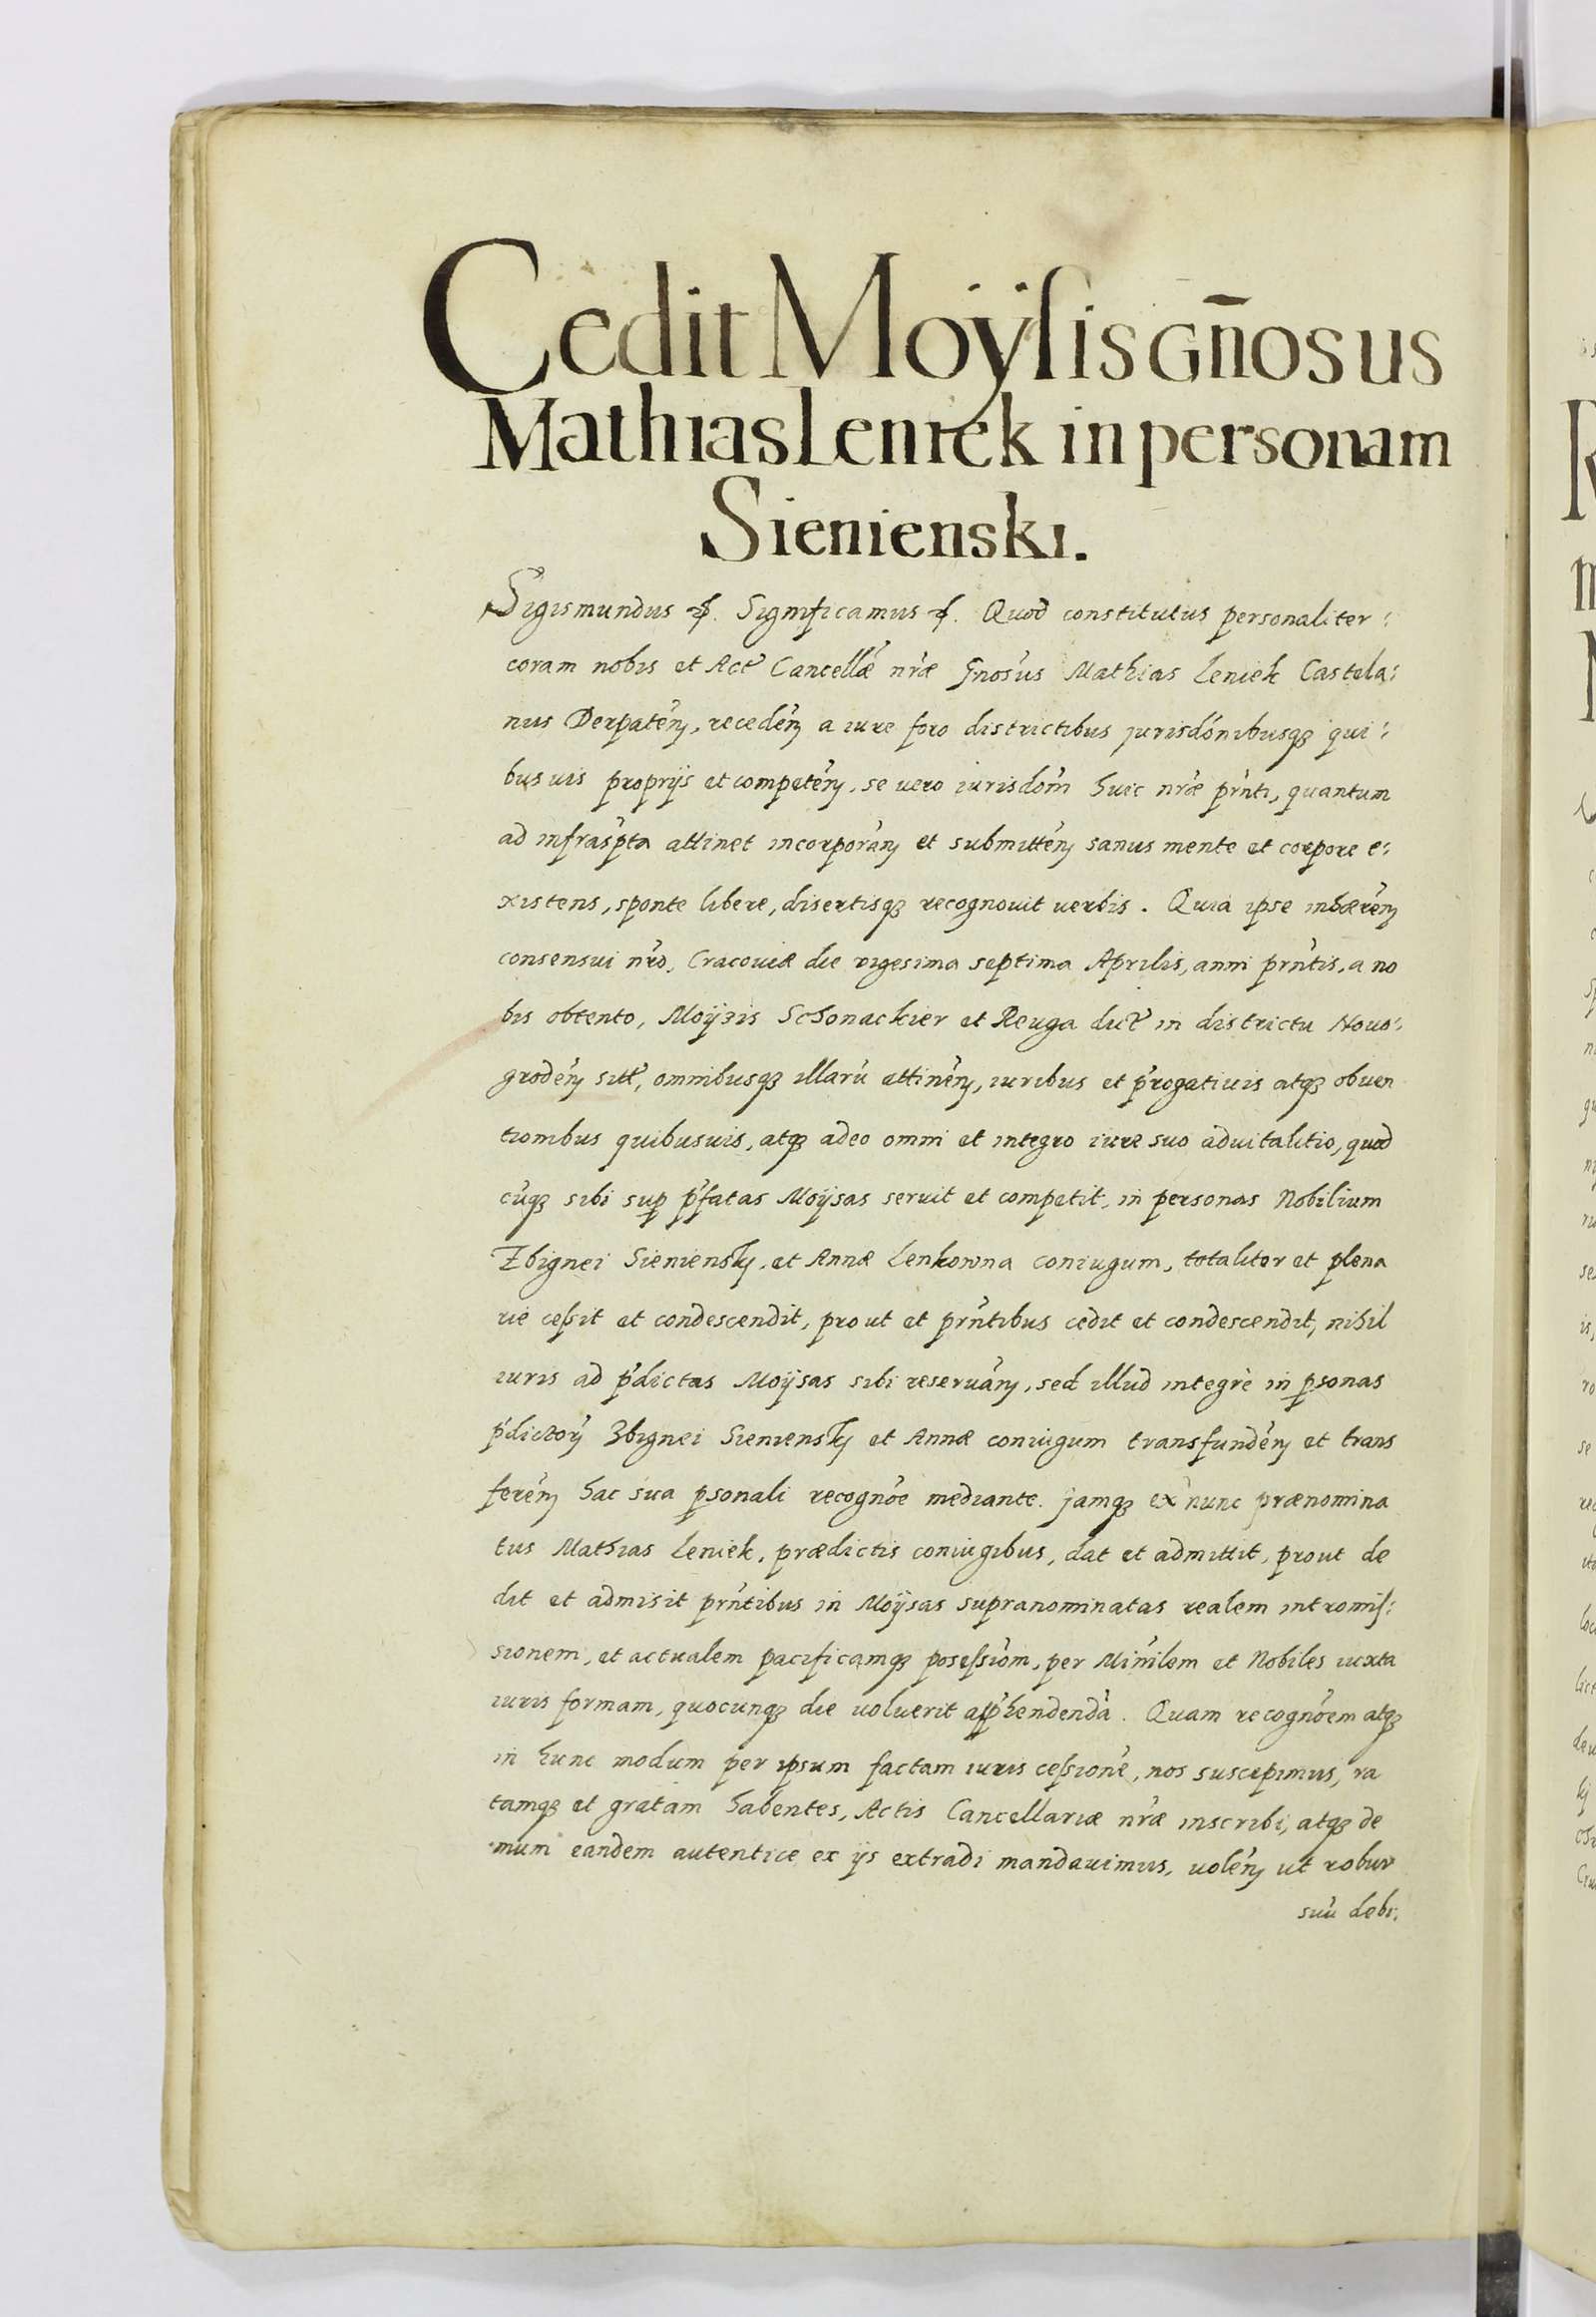 Cedit Moÿsis Gn̄osus
Mathias Leniek in personam
Sienienski.
Sigismundus etc. Significamus etc. Quod constitutus personaliter
coram nobis et Act Cancellæ nr̃æ Gnosus Mathias Leniek Castela:
nus Derpateñ, recedeñ a iure foro districtibus jurisdónibusqȝ qui:
bus uis proprijs et competeñ, se uero iurisdom̃ huic nr̃æ prñti, quantum
ad infrasp̃ta attinet incorporañ et submitteñ sanus mente et corpore e:
xistens, sponte libere, disertisqȝ recognouit uerbis. Quia ipse inhæreñ
consensui nr̃o, Cracouiæ die vigesima septima Aprilis, anni prñtis, a no
bis obtento, Moÿzis Schonackier et Reuga dict in districtu Nouo:
grodeñ sitt, omnibusqȝ illarũ attineñ, iuribus et p̃rogatiuis atqȝ obuen
tionibus quibusuis, atqȝ adeo omni et integro iure suo aduitalitio, quod
cũqȝ sibi sup p̃fatas Moÿsas seruit et competit, in personas Nobilium
Zbignei Sieniensky, et Annæ Lenkowna coniugum, totaliter et plena
rie cessit et condescendit, prout et prñtibus cedit et condescendit, nihil
iuris ad p̃dictas Moÿsas sibi reseruañ, sed illud integrè in psonas
p̃dictorũ Zbignei Sieniensky et Annæ coniugum transfundeñ et trans
fereñ hac sua psonali recognõe mediante. jamqȝ ex nunc prænomina
tus Mathias Leniek, prædictis coniugibus, dat et admittit, prout de
dit et admisit prñtibus in Moÿsas supranominatas realem intromis:
sionem, et actualem pacificamqȝ posessiom̃, per Miñilem et Nobiles iuxta
iuris formam, quocunqȝ die uoluerit app̃hendendã. Quam recognõem atqȝ
in hunc modum per ipsum factam iuris cessionẽ, nos suscepimus, ra
tamqȝ et gratam habentes, Actis Cancellariæ nr̃æ inscribi, atqȝ de
mum eandem autentice ex ijs extradi mandauimus, uoleñ ut robur
suũ debi: